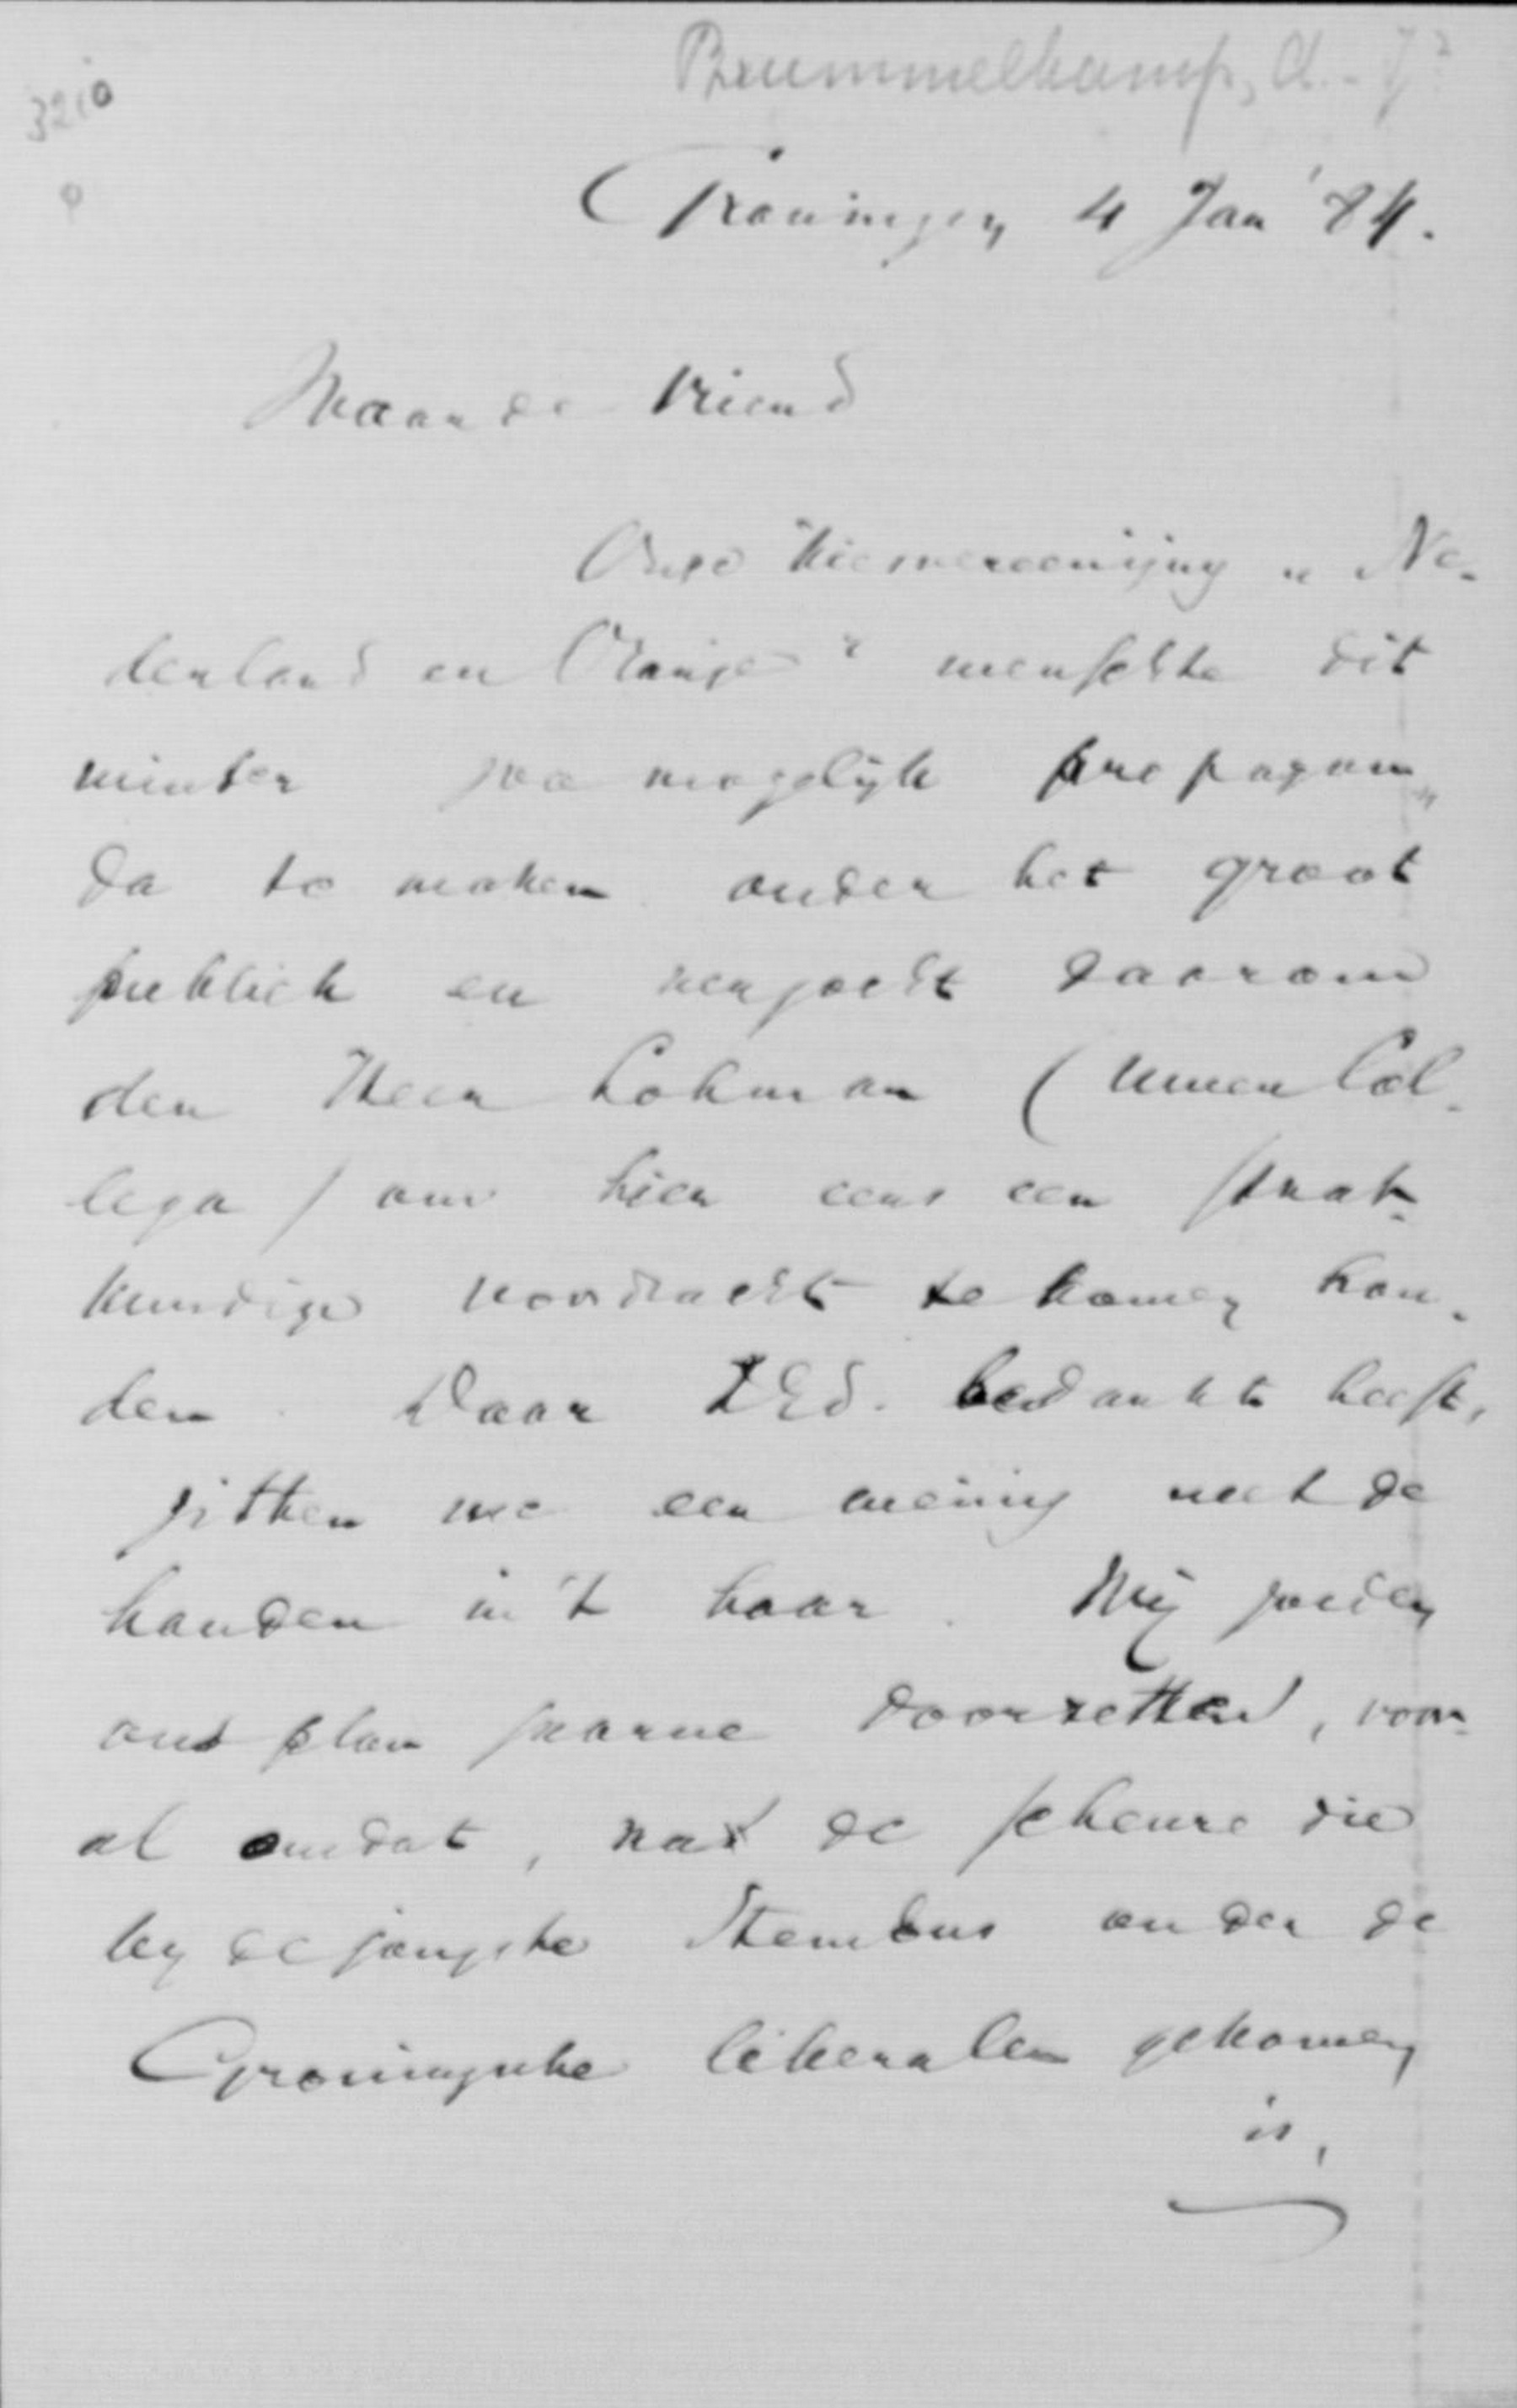 Brummelkamp, A. - J?
3210
Groningen, 4 Jan '84.
Waarde Vriend
Onze Kiesvereeniging „Ne-
derland en Oranje" wenschte dit
winter zoo mogelijk propagan„
da te maken onder het groot
publiek en verzocht daarom
den Heer Lohman (Uwen Col-
lega) om hier eens een staat-
kundige voordracht te komen hou-
den. Daar ZEd. bedankt heeft,
zitten we een weinig met de
handen in 't haar. Wij zouden
ons plan gaarne doorzetten, voor-
al omdat, na de scheure die
by de jongste Stembus onder de
Groningsche liberalen gekomen
is,